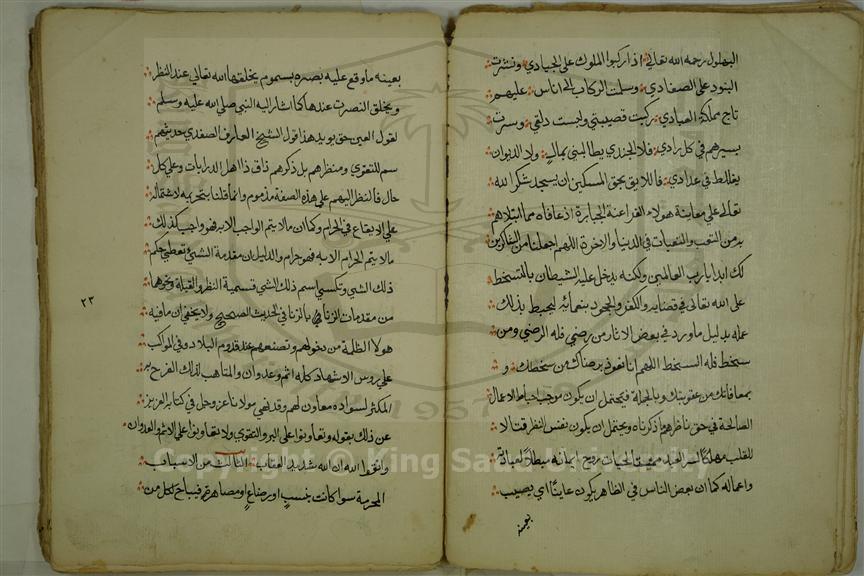 البهلول رحمه الله تعالى اذا ركبوا الملوك على الجيادي ونشرت
البنود على الصفادي وسلت الركاب الى اناس عليهم
تاج مملكة العبادي ركبت قصيبتي ولبست دلقي وسرت
بسيرهم في كل وادي فلا الجندي يطالبني بمال ولا الديوان
يغلط في عدادي فاللايق بحق المسكين ان يسجد شكر الله
تعالى علي معاينة هولاء الفراعنة الجبارة اذ عافاه مما ابتلاهم
به من التعب والتعبات في الدنيا والاخرة اللهم اجعلنا من الشاكرين
لك ابدا يا رب العالمين ولكنه يدخل عليه الشيطان بالتسخط
على الله تعالى في قضايه والكفر والجحود بنعمائه ليحبط بذلك
عمله بدليل ما ورد في بعض الاثار من رضي فله الرضي ومن
سخط فله السخط اللهم انا نعوذ برضاك من سخطك و
بمعافاتك من عقوبتك وبالجملة فيحتمل ان يكون موجب احباط الاعمال
الصالحة في حق ناظرهم ما ذكرناه ويحتمل ان يكون نفس النظر قتالا
للقلب مهلكا
واعماله كما ان بعض الناس في الظاهر يكون عاينا اي يصيب
بعينه
بعينه ما وقع عليه بصره بسموم يخلقها الله تعالى عند النظر
ويخلق النصرت عندها كما اشار اليه النبي صلى الله عليه وسلم
لقول العين حق يويد هذا قول الشيخ العارف الصفدي حديثهم
سم للتقوي ومنظرهم بل ذكرهم ذاق ذا اهل الدرايات وعلى كل
حال فالنظر اليهم على هذه الصفة مذموم وانما قلنا بتحريمه لاشتماله
على الايقاع في الحرام وكما ان ما لا يتم الواجب الا به فهو واجب كذلك
ما لا يتم الحرام الا به فهو حرام والدليل ان مقدمة الشي تعطى حكم
ذلك الشي وتكسبى اسم ذلك الشي تسمية النظر والقبلة ونحوها
من مقدمات الزنا بالزنا في الحديث الصحيح ولا يخفي ان ما فيه
هولا الظلمة من دخولهم وتصنعهم عند قدوم البلاد وفي المواكب
علي روس الاشهاد كله اثم وعدوان والمتاهب لذلك الفرح به
المكثر لسواده معاون لهم وقد نهى مولانا عز وجل في كتابه العزيز
عن ذلك بقوله وتعاونوا على البر والتقوى ولا تعاونوا على الاثم والعدوان
واتقوا الله ان الله شديد العقاب الثالث من الاسباب
المحرمة سوا كانت بنسب او رضاع او مصاهرة فيباح لكل من
٢٣
Copyright © King Saud University
1957